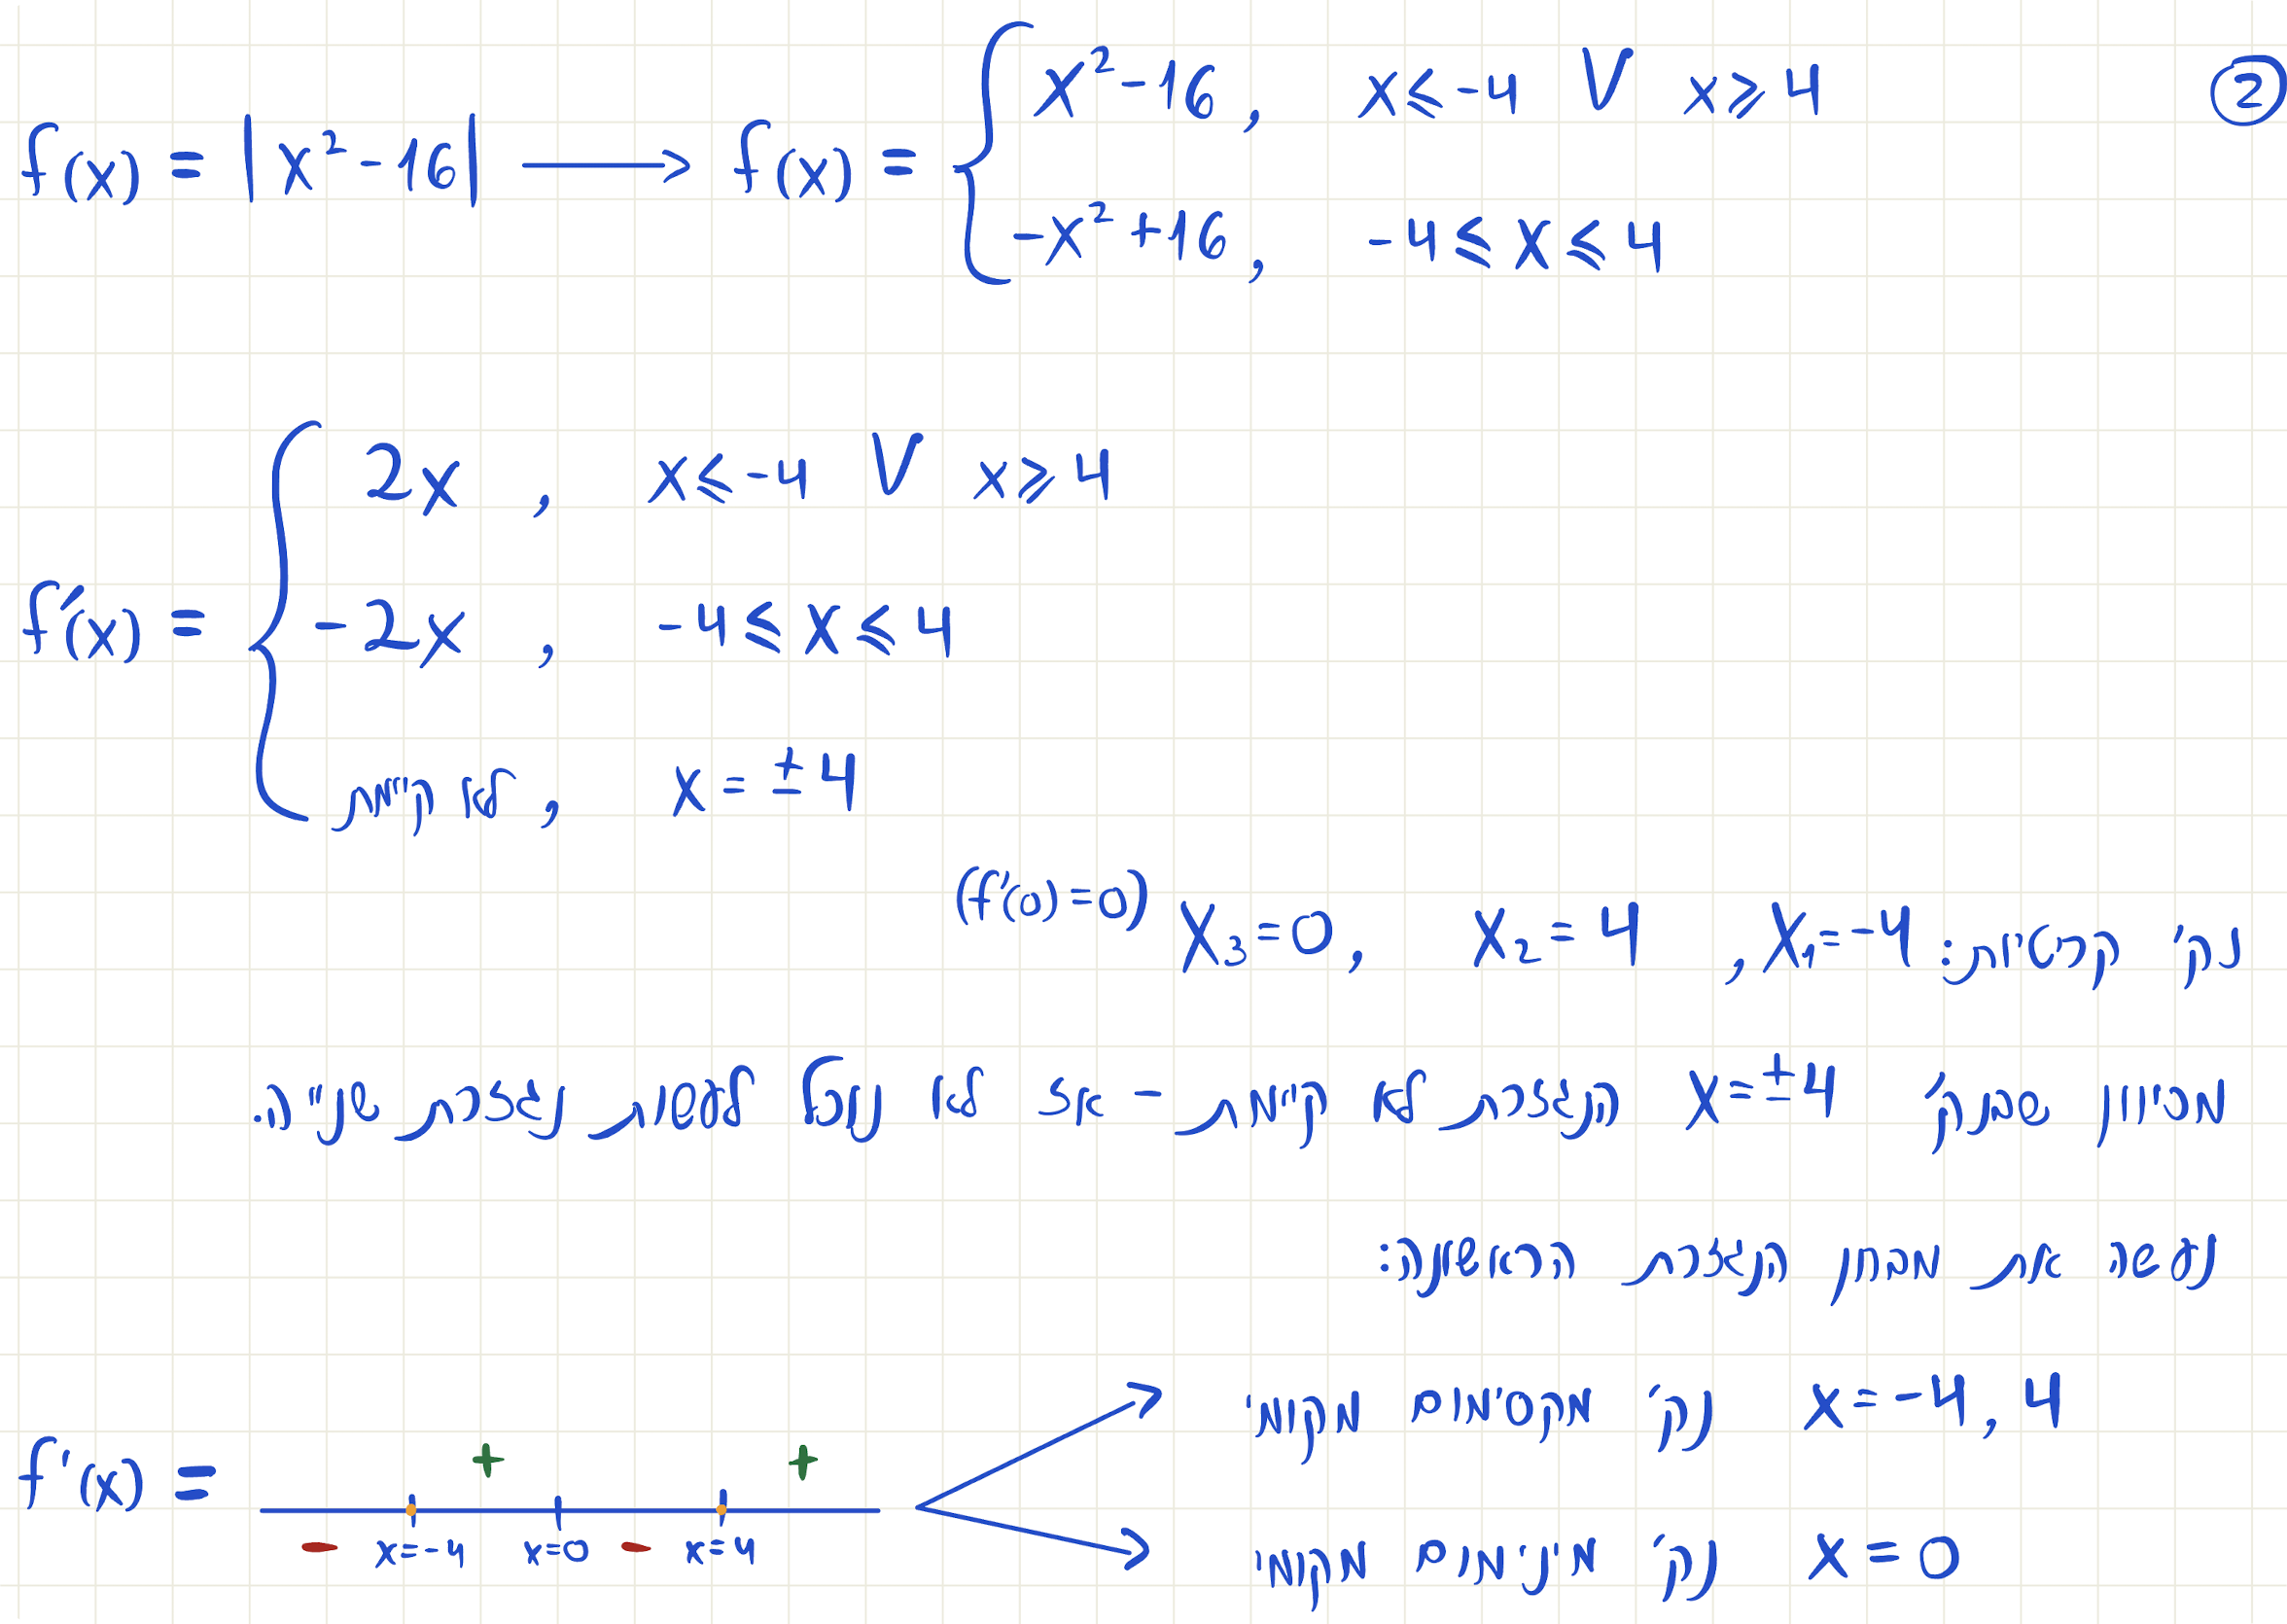 ②
f(x) = |x² - 16| ⟶ f(x) = { x² - 16 , x ≤ -4 ∨ x ≥ 4
-x² + 16 , -4 ≤ x ≤ 4
f'(x) = { 2x , x ≤ -4 ∨ x ≥ 4
-2x , -4 ≤ x ≤ 4
לא קיימת , x = ±4
נק' קריטיות: x₁ = -4 , x₂ = 4 , x₃ = 0 (f'(0) = 0)
מכיוון שבנק' x = ±4 הנגזרת לא קיימת - אז לא נוכל לעשות נגזרת שנייה.
נעשה את מבחן הנגזרת הראשונה:
f'(x) = - x=-4 + x=0 - x=4 +
x = -4, 4 נק' מקסימום מקומי
x = 0 נק' מינימום מקומי